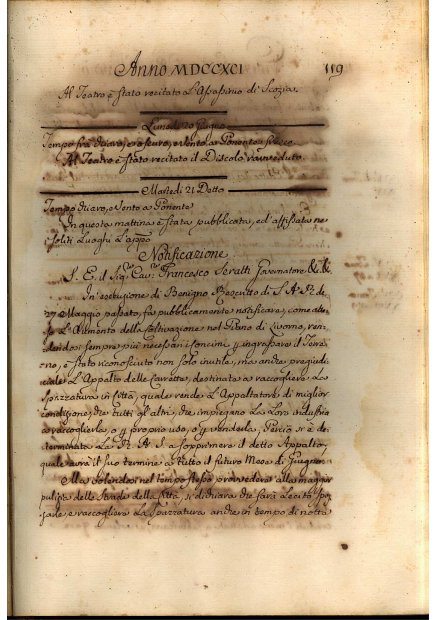 Anno MDCCXCI 119
Al Teatro è stato recitato L'Assassino di Scozia.
Lunedì 20 Giugno
Tempo fra chiaro, e oscuro, e Vento a Ponente fresco
Al Teatro è stato recitato il Discolo ravveduto
Martedì 21 Detto
Tempo chiaro, e Vento a Ponente
In questa mattina è stata pubblicata, ed affissata ne
soliti Luoghi L'appo
Notificazione
S. E. il Sig.r Cav.r Francesco Seratti Governatore &c. &c.
In esecuzione di Benigno Rescritto di S. A. R. de
27 Maggio passato, fa pubblicamente notificare, come atte-
so L'Aumento della Coltivazione nel Piano di Livorno, ren-
dendosi sempre più necessari i concimi p ingrassare il Terre-
no, è stato riconosciuto non solo inutile, ma anche pregiudi-
ciale L'Appalto delle Carrette, destinate a raccogliere La
Spazzatura in Città, quale rende L'Appaltatore di miglior
condizione, che tutti gli altri, che impiegano La Loro industria
a raccoglierla, o p proprio uso, o p venderla, Perciò si è de-
terminata La R. A. S. a sopprimere il detto Appalto,
quale avrà il suo termine a tutto il futuro Mese di Giugno.
Ma volendosi nel tempo stesso provvedere alla maggior
pulizia delle Strade della Città, si dichiara che sarà Lecito spaz-
zare, e raccogliere La Spazzatura anche in tempo di notte